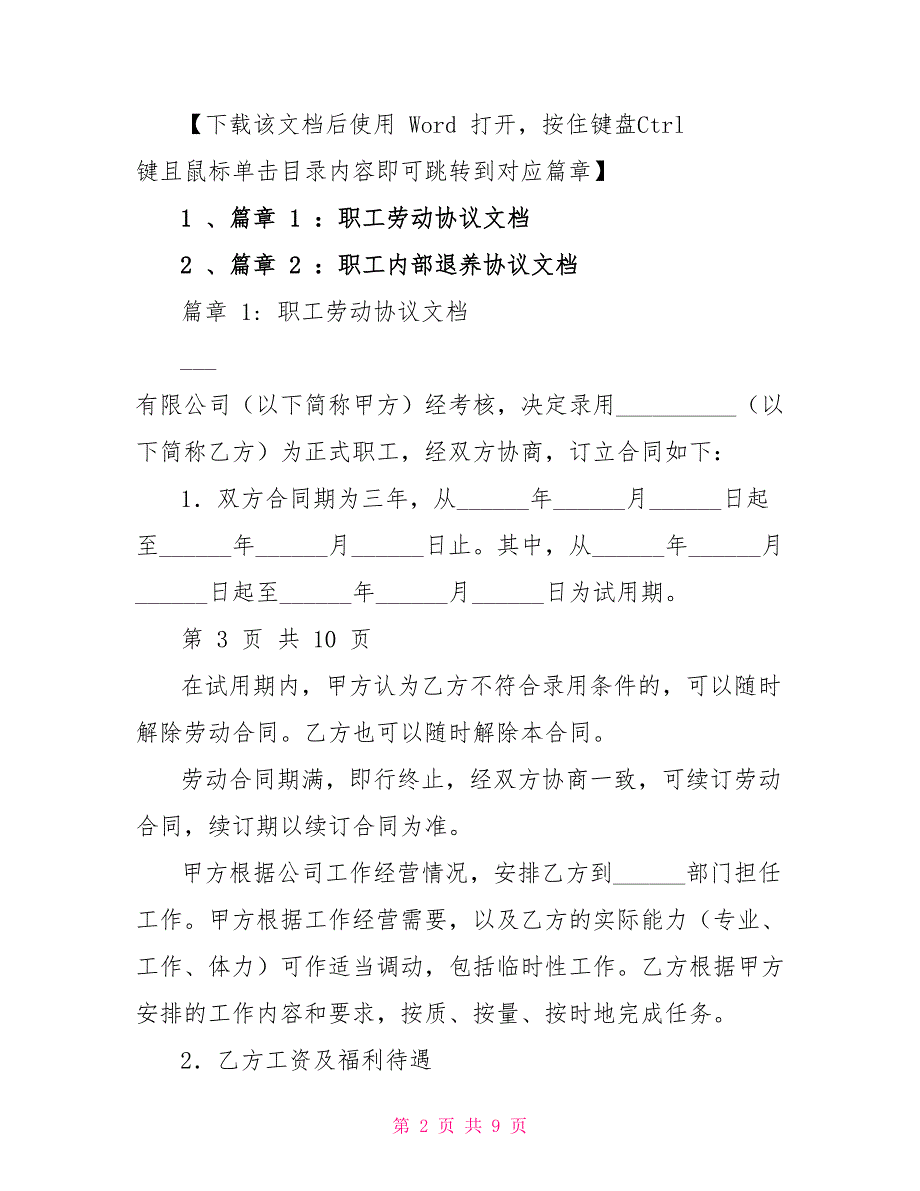 【下载该文档后使用 Word 打开，按住键盘Ctrl
键且鼠标单击目录内容即可跳转到对应篇章】
1 、篇章 1 ：职工劳动协议文档
2 、篇章 2 ：职工内部退养协议文档
篇章 1: 职工劳动协议文档
___
有限公司（以下简称甲方）经考核，决定录用__________（以
下简称乙方）为正式职工，经双方协商，订立合同如下：
1．双方合同期为三年，从______年______月______日起
至______年______月______日止。其中，从______年______月
______日起至______年______月______日为试用期。
第 3 页 共 10 页
在试用期内，甲方认为乙方不符合录用条件的，可以随时
解除劳动合同。乙方也可以随时解除本合同。
劳动合同期满，即行终止，经双方协商一致，可续订劳动
合同，续订期以续订合同为准。
甲方根据公司工作经营情况，安排乙方到______部门担任
工作。甲方根据工作经营需要，以及乙方的实际能力（专业、
工作、体力）可作适当调动，包括临时性工作。乙方根据甲方
安排的工作内容和要求，按质、按量、按时地完成任务。
2．乙方工资及福利待遇
第 2 页 共 9 页